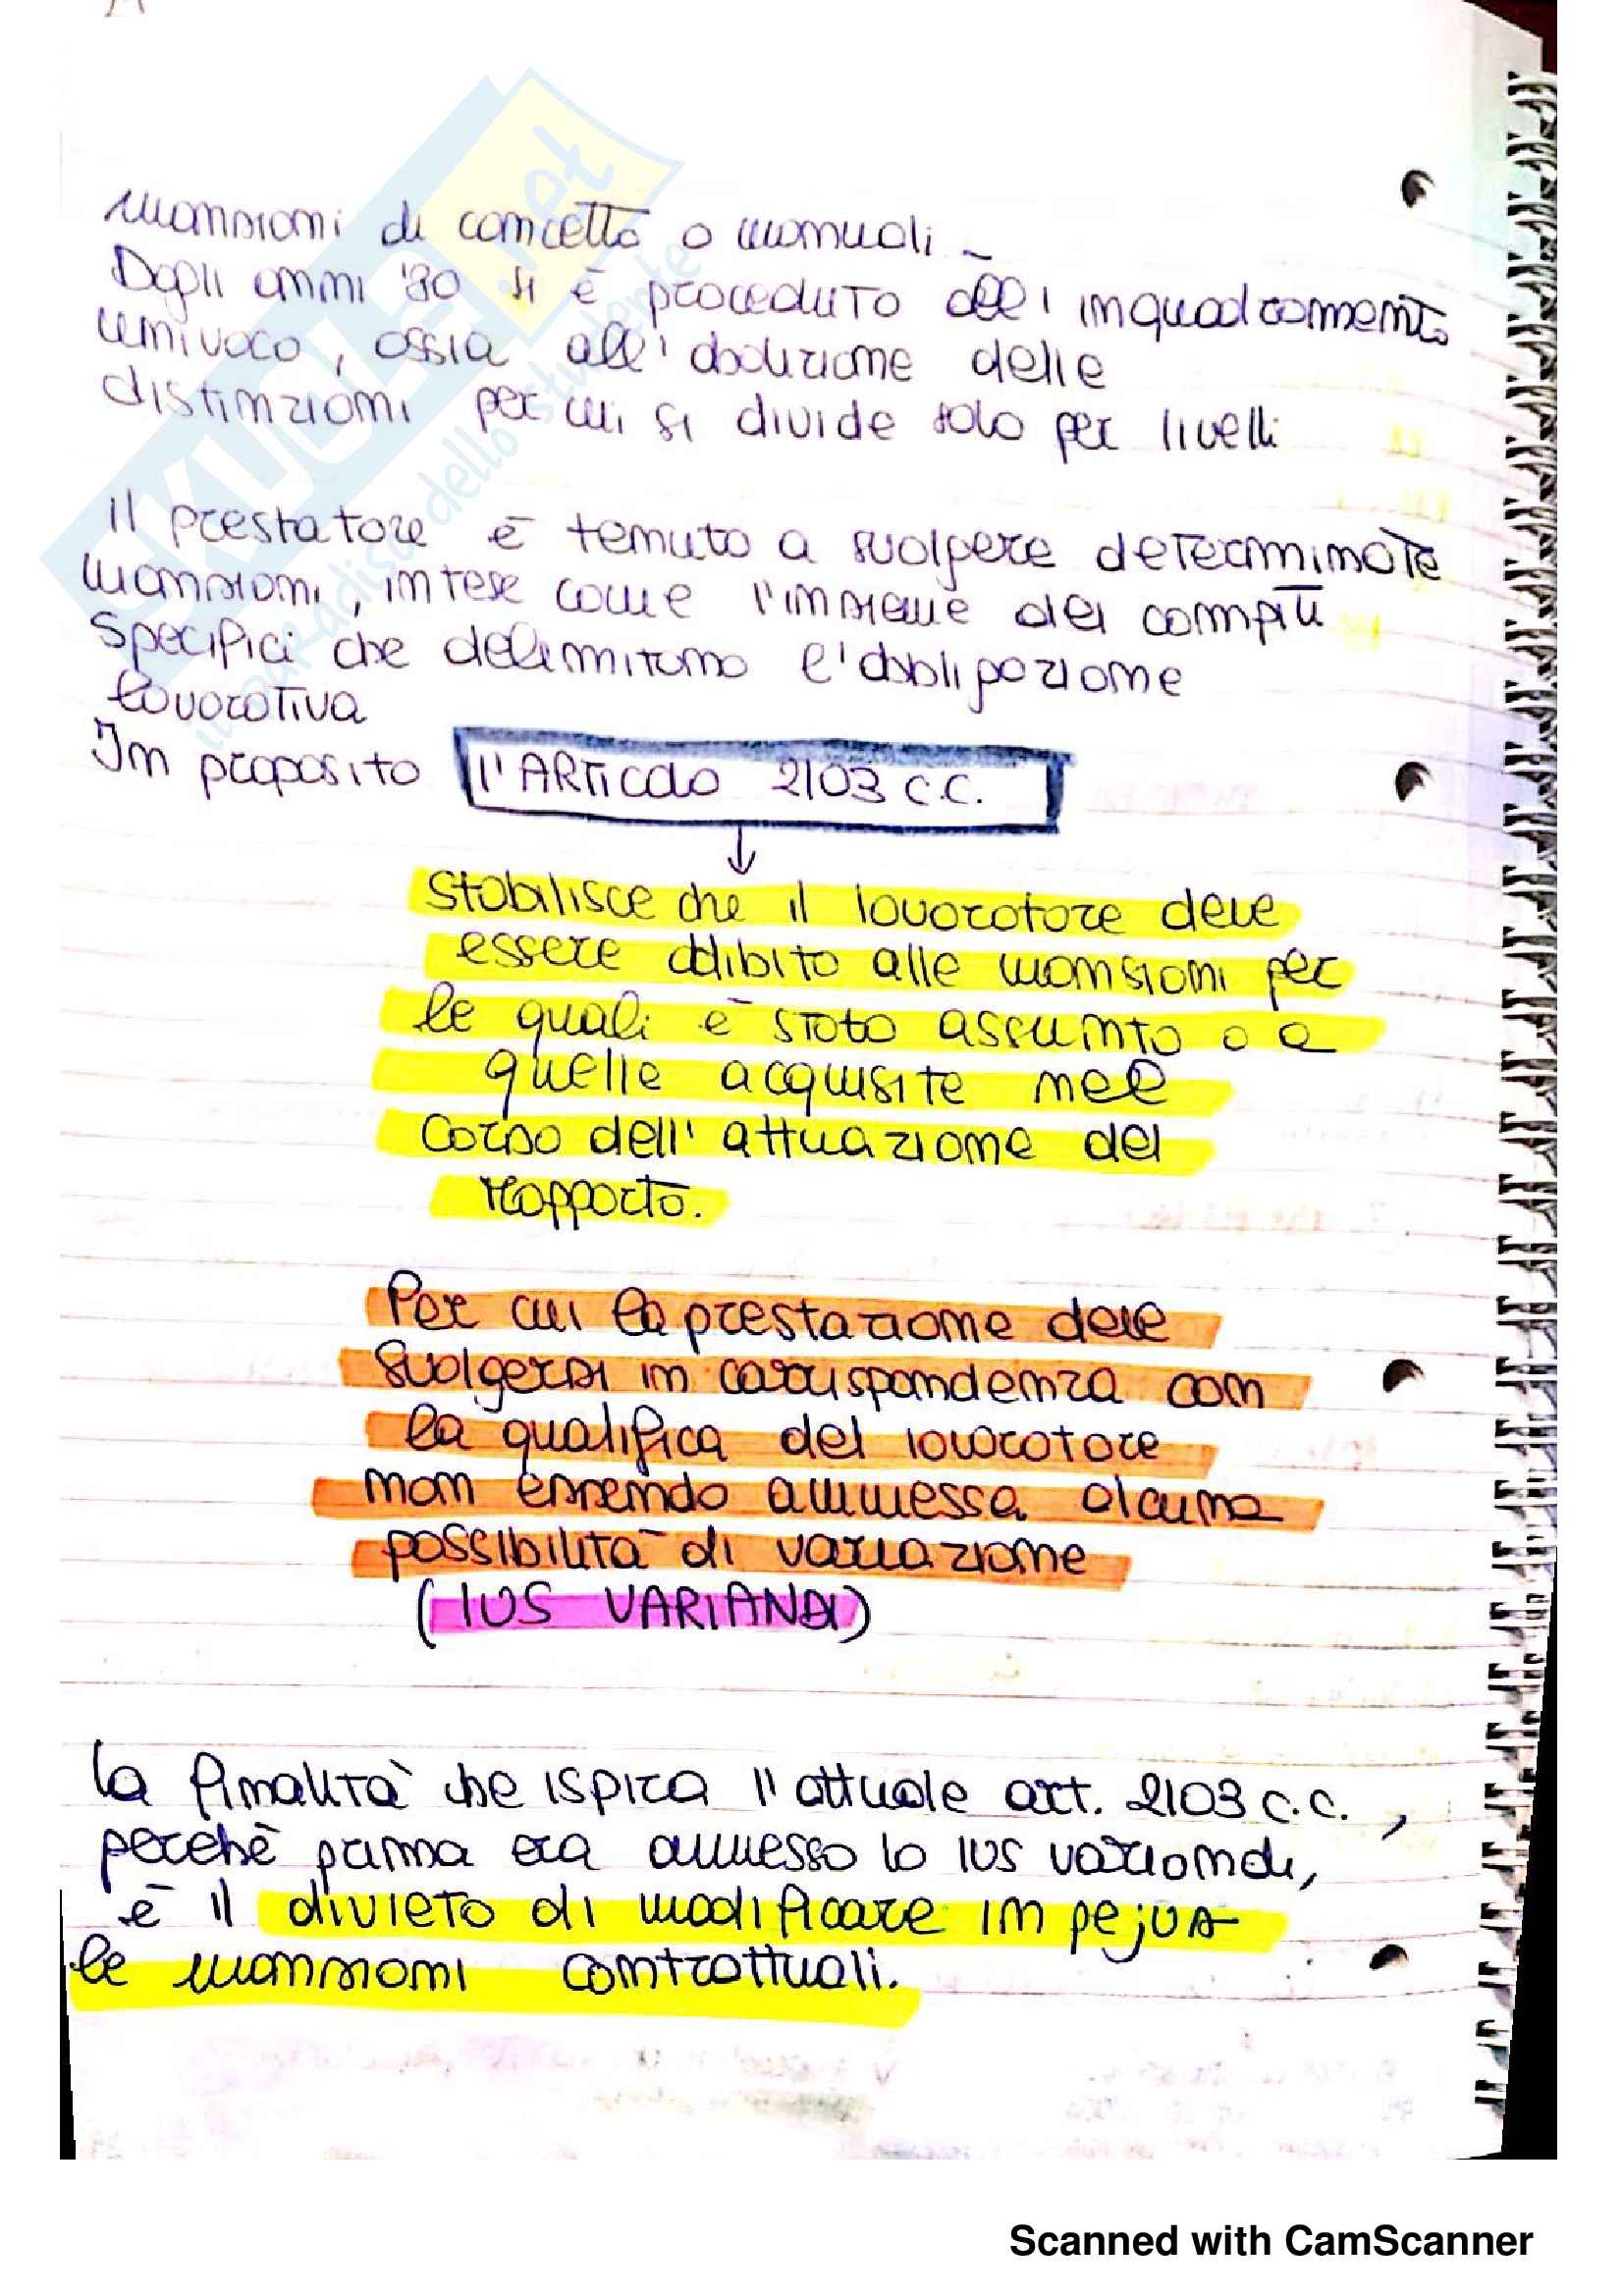 mansioni di concetto o manuali.
Dagli anni '80 si è proceduto all'inquadramento
univoco, ossia all'abolizione delle
distinzioni per cui si divide solo per livelli
Il prestatore è tenuto a svolgere determinate
mansioni, intese come l'insieme dei compiti
specifici che delimitano l'obbligazione
lavorativa
In proposito l'ARTicolo 2103 c.c.
↓
Stabilisce che il lavoratore deve
essere adibito alle mansioni per
le quali è stato assunto o a
quelle acquisite nel
corso dell'attuazione del
rapporto.
Per cui la prestazione deve
svolgersi in corrispondenza con
la qualifica del lavoratore
non essendo ammessa alcuna
possibilità di variazione
(IUS VARIANDI)
la finalità che ispira l'attuale art. 2103 c.c.,
perchè prima era ammesso lo ius variandi,
è il divieto di modificare in pejus
le mansioni contrattuali.
SKUOLA.net
il paradiso dello studente
Scanned with CamScanner